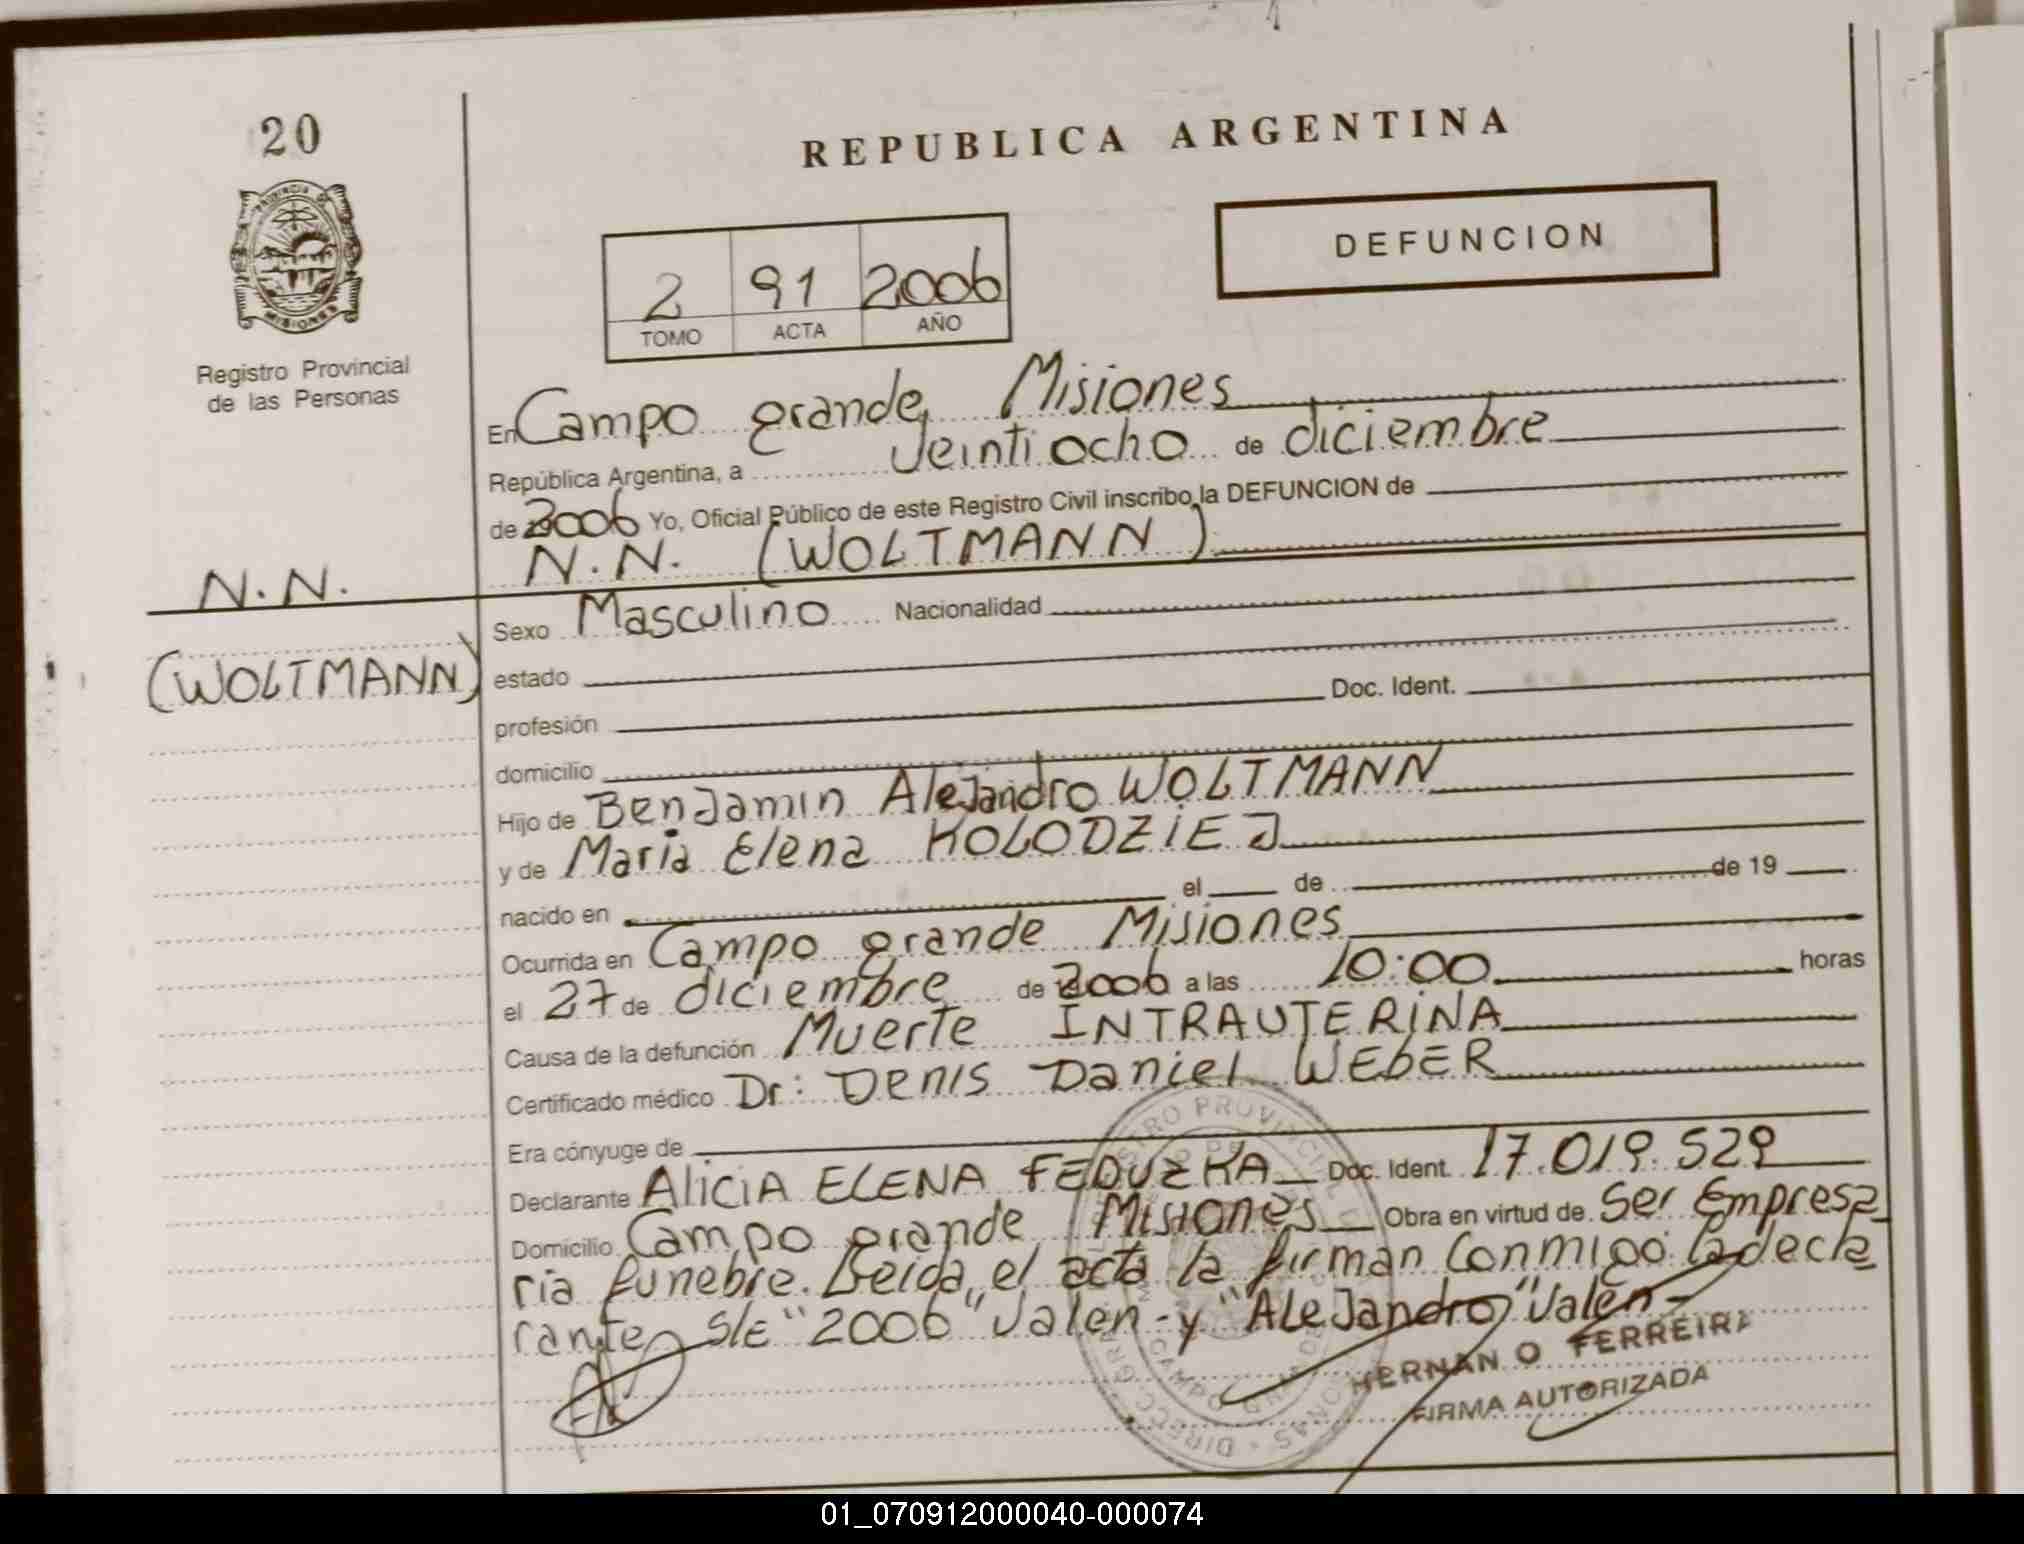 20
REPUBLICA ARGENTINA
DEFUNCION
PROVINCIA DE
MISIONES
2 91 2006
TOMO ACTA AÑO
Registro Provincial
de las Personas
En Campo grande, Misiones
República Argentina, a veintiocho de diciembre
de 2006 Yo, Oficial Público de este Registro Civil inscribo la DEFUNCION de
N.N. (WOLTMANN)
N.N.
(WOLTMANN)
Sexo Masculino Nacionalidad
estado
profesión Doc. Ident.
domicilio
Hijo de Benjamin Alejandro WOLTMANN
y de Maria Elena KOLODZIEJ
nacido en el de de 19
Ocurrida en Campo grande Misiones
el 27 de diciembre de 2006 a las 10:00 horas
Causa de la defunción Muerte INTRAUTERINA
Certificado médico Dr: Denis Daniel WEBER
Era cónyuge de
Declarante ALICIA ELENA FEDUZKA Doc. Ident. 17.019.529
Domicilio Campo grande Misiones Obra en virtud de Ser Empresa
ria funebre. Leida, el acta la firman conmigo la decla
rante S/E "2006" Valen - y "ALEJandro" Valen -
HERNAN O FERREIRA
FIRMA AUTORIZADA
01_070912000040-000074